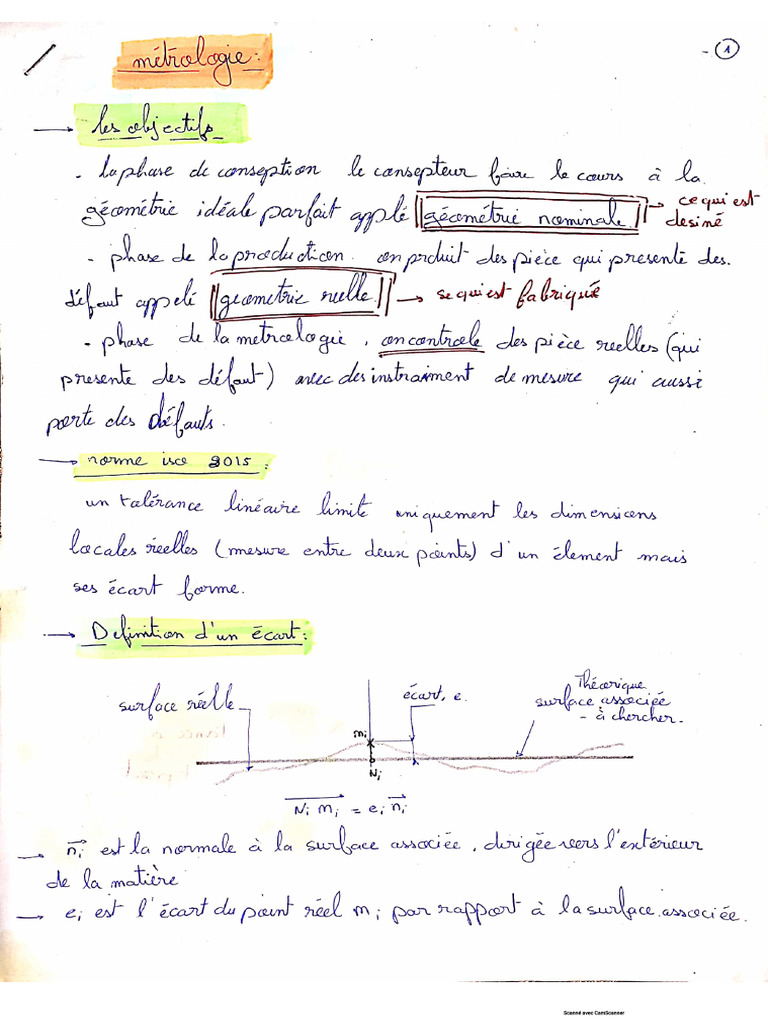 métrologie:
- ①
→ les objectifs
- la phase de conseption le consepteur faire le cours à la
géométrie idéale parfait applé géométrie nominale → ce qui est
desiné
- phase de la production on produit des pièce qui presente des
défaut appelé geometrie reelle → se qui est fabriqué
- phase de la metrologie, on controle des pièce reelles (qui
presente des défaut) avec des instraiment de mesure qui aussi
porte des Défauts.
→ norme iso 2015:
un tolérance linéaire limite uniquement les dimensions
locales réelles (mesure entre deux points) d'un élement mais
ses écart forme.
→ Definition d'un écart:
surface réelle
écart, e
Théorique
surface associée
- à chercher.
mi
Ni
Ni mi = ei ni
→ ni est la normale à la surface associée, dirigée vers l'extérieur
de la matière
→ ei est l'écart du point réel mi par rapport à la surface associée.
Scanné avec CamScanner